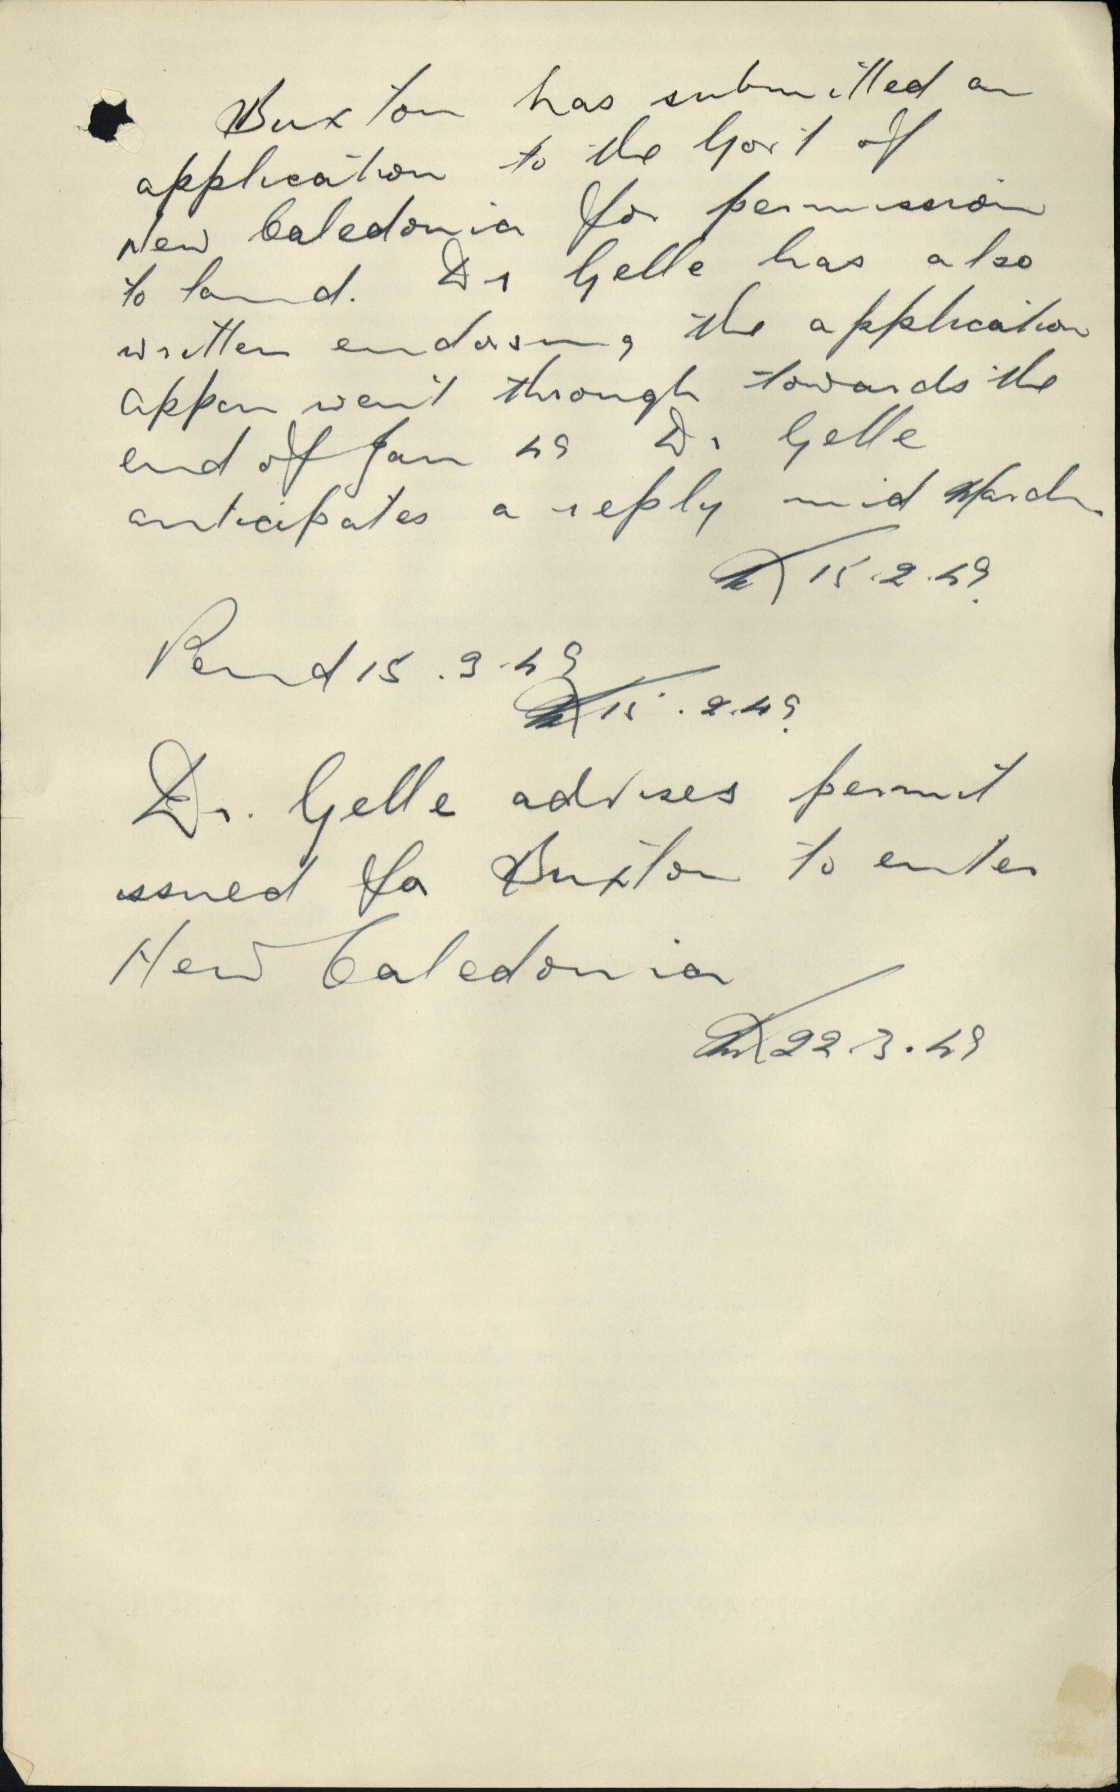 Buxton has submitted an
application to the Gov't of
New Caledonia for permission
to land. Dr Gelle has also
written endorsing the application
Appcn went through towards the
end of Jan 49 Dr Gelle
anticipates a reply mid March
15.2.49
Pend 15.3.49
15.2.49
Dr. Gelle advises permit
issued for Buxton to enter
New Caledonia
22.3.49